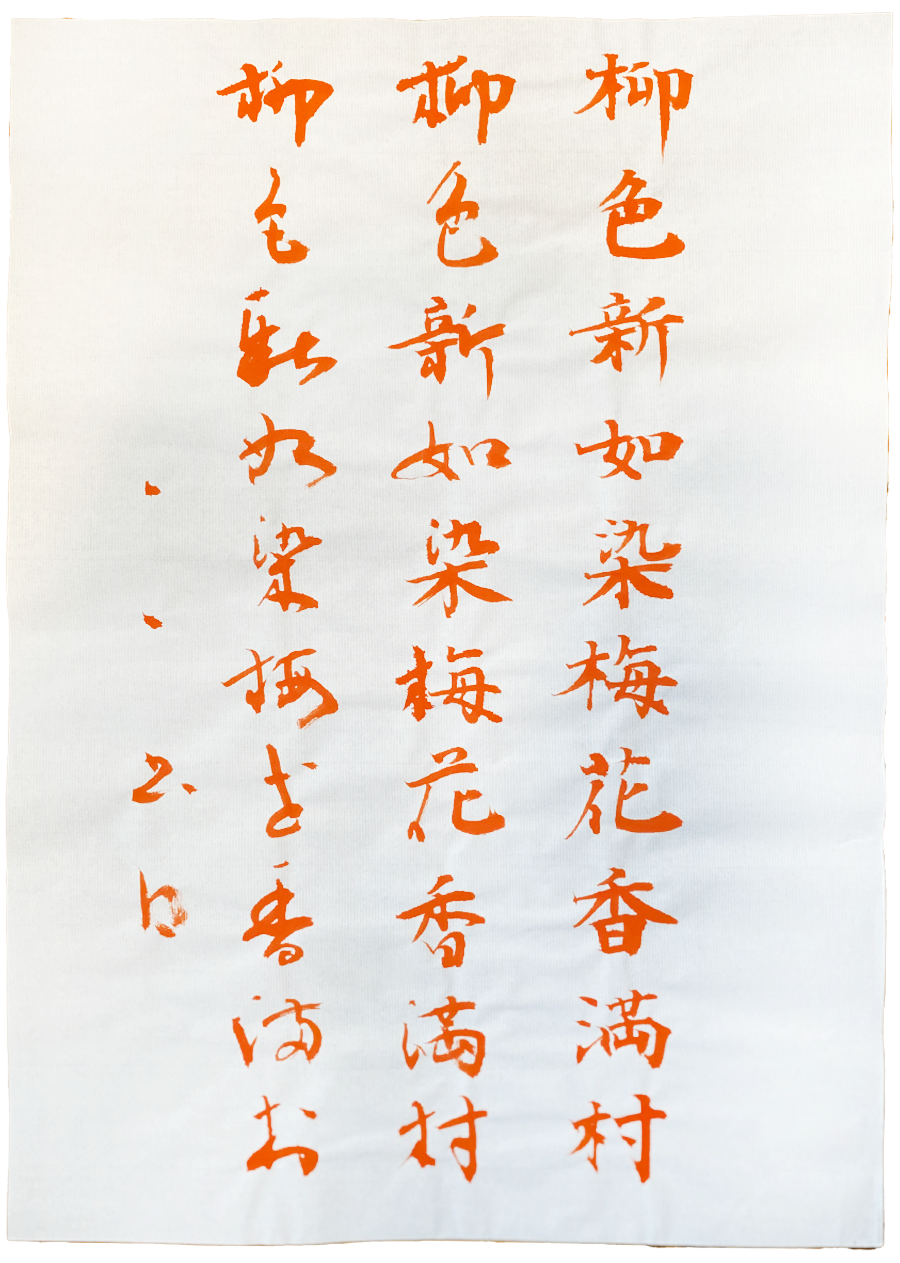 柳色新如染梅花香満村
柳色新如染梅花香満村
柳色新如染梅花香満村